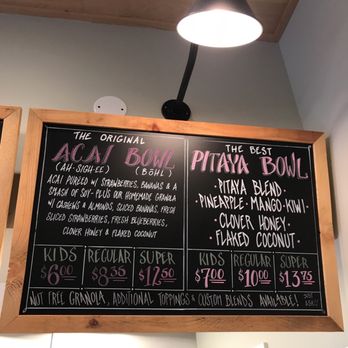 THE ORIGINAL
ACAI BOWL
(AH-SIGH-EE) (BŌHL)
ACAI PUREED W/ STRAWBERRIES, BANANAS & A
SMACK OF SOY- PLUS OUR HOMEMADE GRANOLA
W/ CASHEWS & ALMONDS, SLICED BANANAS, FRESH
SLICED STRAWBERRIES, FRESH BLUEBERRIES,
CLOVER HONEY & FLAKED COCONUT
KIDS REGULAR SUPER
$6.00 $8.35 $12.50
THE BEST
PITAYA BOWL
· PITAYA BLEND ·
· PINEAPPLE · MANGO · KIWI ·
· CLOVER HONEY ·
· FLAKED COCONUT ·
KIDS REGULAR SUPER
$7.00 $10.00 $13.75
NUT FREE GRANOLA, ADDITIONAL TOPPINGS & CUSTOM BLENDS AVAILABLE! JUST ASK!